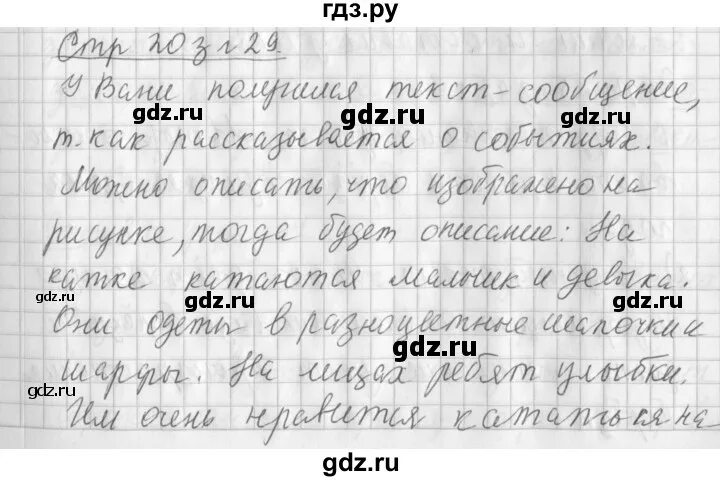 гдз.ру
Стр 20 з 29.
У Вани получился текст-сообщение,
т.как рассказывается о событиях.
Можно описать, что изображено на
рисунке, тогда будет описание: На
катке катаются мальчик и девочка.
Они одеты в разноцветные шапочки и
шарфы. На лицах ребят улыбки.
Им очень нравится кататься на
gdz.ru
gdz.ru
gdz.ru
gdz.ru
gdz.ru
gdz.ru
gdz.ru
gdz.ru
gdz.ru
gdz.ru
gdz.ru